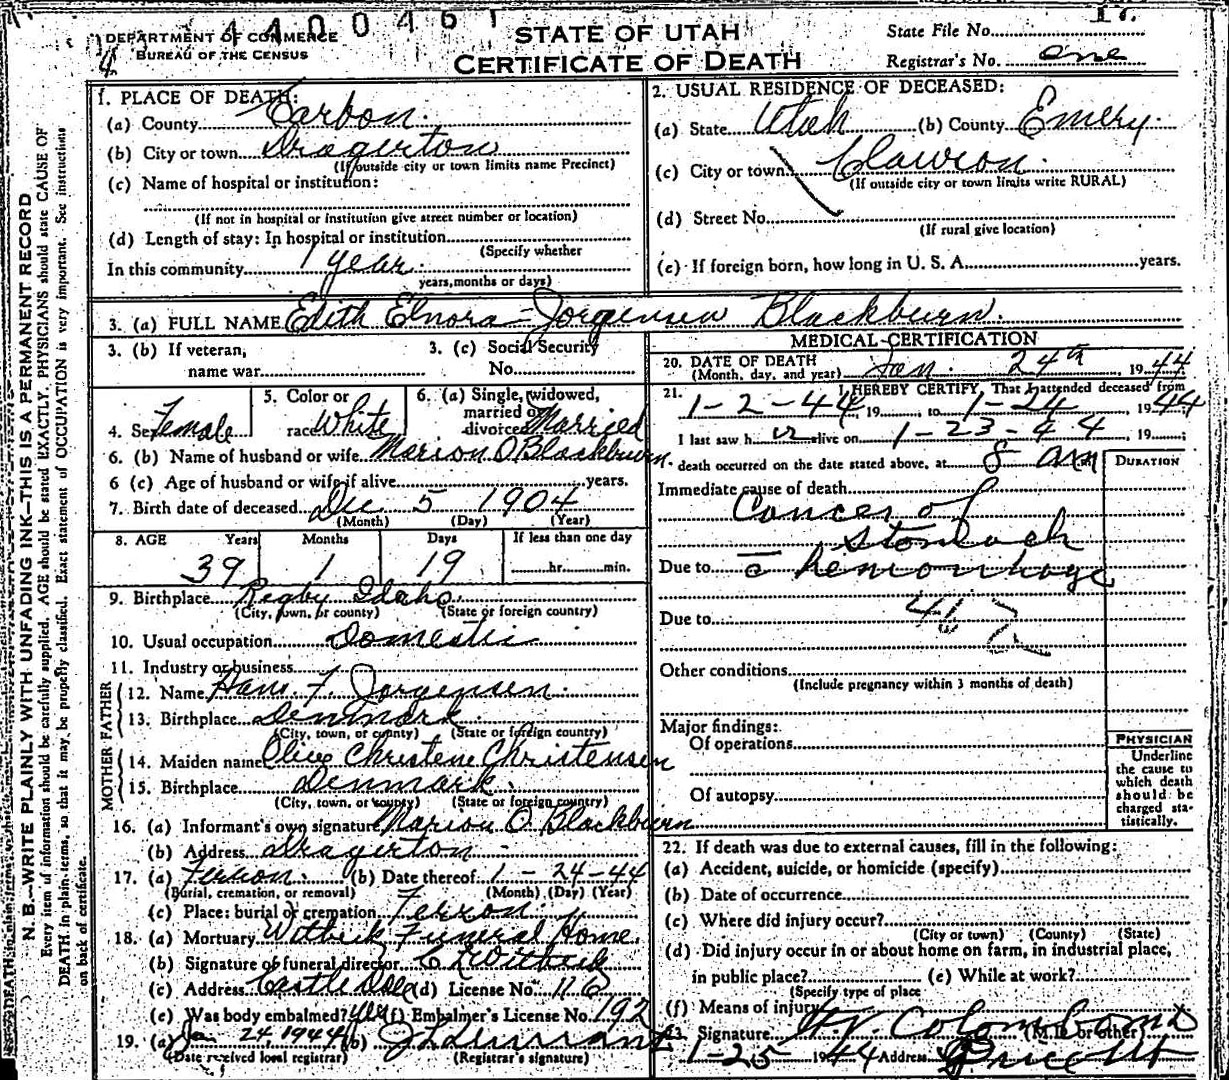 4400461
17.
DEPARTMENT OF COMMERCE
BUREAU OF THE CENSUS
4
STATE OF UTAH
CERTIFICATE OF DEATH
State File No.
Registrar's No. one
N. B.—WRITE PLAINLY WITH UNFADING INK—THIS IS A PERMANENT RECORD
Every item of information should be carefully supplied. AGE should be stated EXACTLY. PHYSICIANS should state CAUSE OF
DEATH in plain terms, so that it may be properly classified. Exact statement of OCCUPATION is very important. See instructions
on back of certificate.
1. PLACE OF DEATH:
(a) County Carbon.
(b) City or town Dragerton
(If outside city or town limits name Precinct)
(c) Name of hospital or institution:
(If not in hospital or institution give street number or location)
(d) Length of stay: In hospital or institution
(Specify whether
In this community 1 year.
years, months or days)
2. USUAL RESIDENCE OF DECEASED:
(a) State Utah (b) County Emery.
(c) City or town Clawson.
(If outside city or town limits write RURAL)
(d) Street No.
(If rural give location)
(e) If foreign born, how long in U. S. A. years.
3. (a) FULL NAME Edith Elnora Jorgensen Blackburn.
3. (b) If veteran, name war
3. (c) Social Security No.
4. Sex Female
5. Color or race White
6. (a) Single, widowed, married or divorced Married
6. (b) Name of husband or wife Marion O Blackburn.
6 (c) Age of husband or wife if alive years.
7. Birth date of deceased Dec 5 1904
(Month) (Day) (Year)
8. AGE Years Months Days If less than one day
39 1 19 hr. min.
9. Birthplace Rigby Idaho.
(City, town, or county) (State or foreign country)
10. Usual occupation Domestic
11. Industry or business
FATHER
12. Name Hans F. Jorgensen.
13. Birthplace Denmark.
(City, town, or county) (State or foreign country)
MOTHER
14. Maiden name Olive Christene Christensen
15. Birthplace Denmark.
(City, town, or county) (State or foreign country)
16. (a) Informant's own signature Marion O. Blackburn
(b) Address Dragerton
17. (a) Ferron. (b) Date thereof 1-24-44
(Burial, cremation, or removal) (Month) (Day) (Year)
(c) Place: burial or cremation Ferron.
18. (a) Mortuary Witbeck Funeral Home.
(b) Signature of funeral director Witbeck
(c) Address Castle Dale (d) License No.
(e) Was body embalmed? yes (f) Embalmer's License No. 192
19. (a) Jan 24, 1944 (b)
(Date received local registrar) (Registrar's signature)
MEDICAL CERTIFICATION
20. DATE OF DEATH
(Month, day, and year) Jan. 24th, 1944
21. I HEREBY CERTIFY, That I attended deceased from
1-2-44, 19 to 1-24, 1944
I last saw her alive on 1-23-44, 19;
death occurred on the date stated above, at 8 am m
DURATION
Immediate cause of death
Cancer of
Stomach
Due to c̄ hemorrhage
Due to
46
Other conditions
(Include pregnancy within 3 months of death)
Major findings:
Of operations
Of autopsy
PHYSICIAN
Underline
the cause to
which death
should be
charged sta-
tistically.
22. If death was due to external causes, fill in the following:
(a) Accident, suicide, or homicide (specify)
(b) Date of occurrence
(c) Where did injury occur?
(City or town) (County) (State)
(d) Did injury occur in or about home on farm, in industrial place,
in public place? (e) While at work?
(Specify type of place
(f) Means of injury
23. Signature Colombo (M.D. or other)
1-25-1944 Address Price Ut